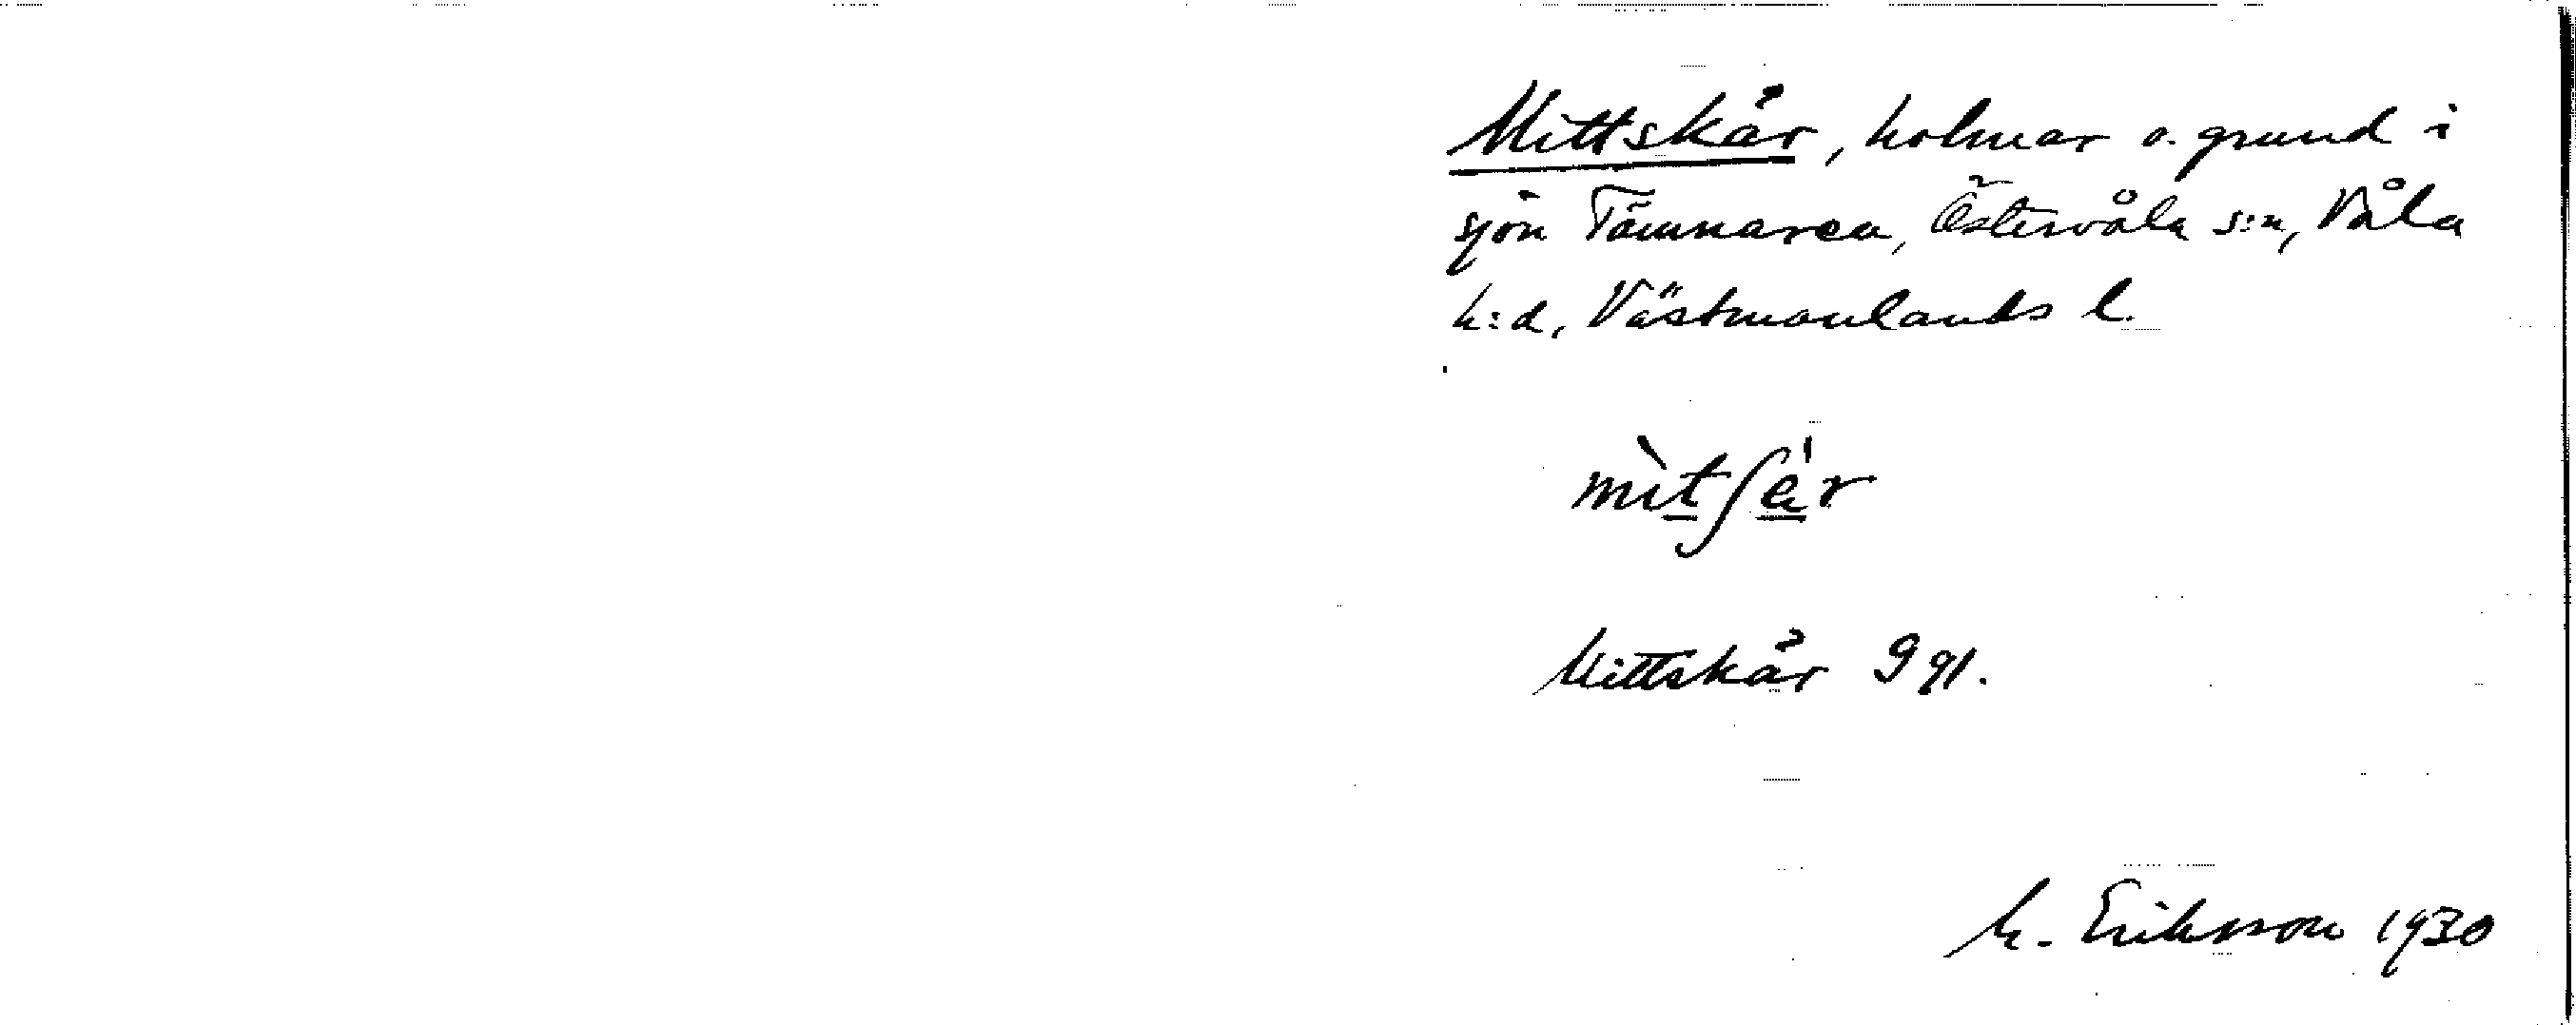 Mittskär, holmar o. grund i
sjön Tämnaren, Östervåla s:n, Våla
h:d, Västmanlands l.
mìtʃè̠r
Mittskär G gl.
M. Eriksson 1930